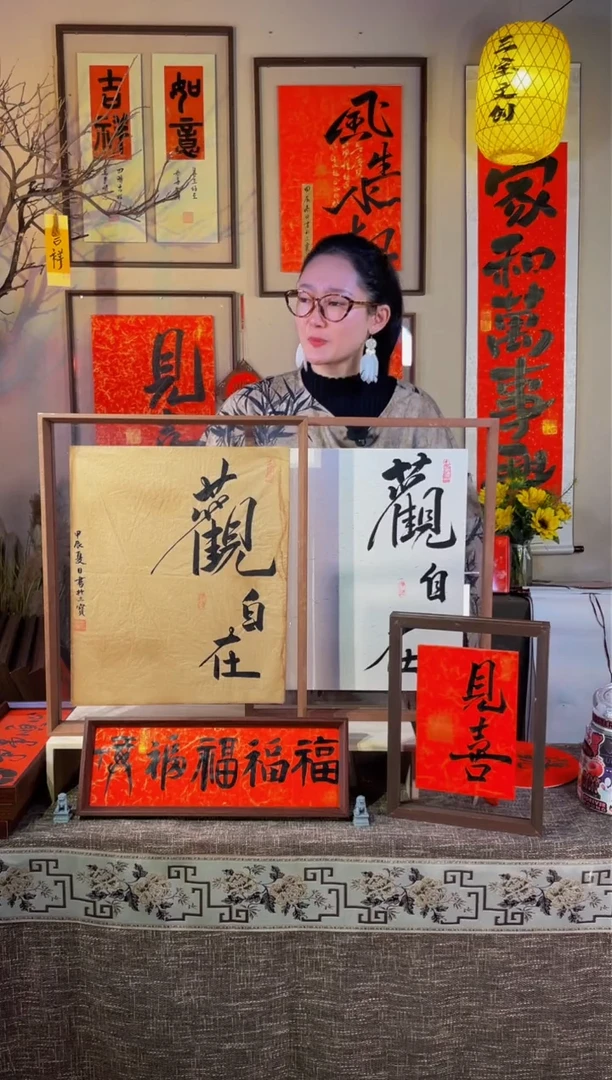 吉祥
如意
風生水
三宝文创
家和萬事興
吉祥
見喜
觀自在
甲辰夏日書於三寶
觀自在
福福福福
見喜